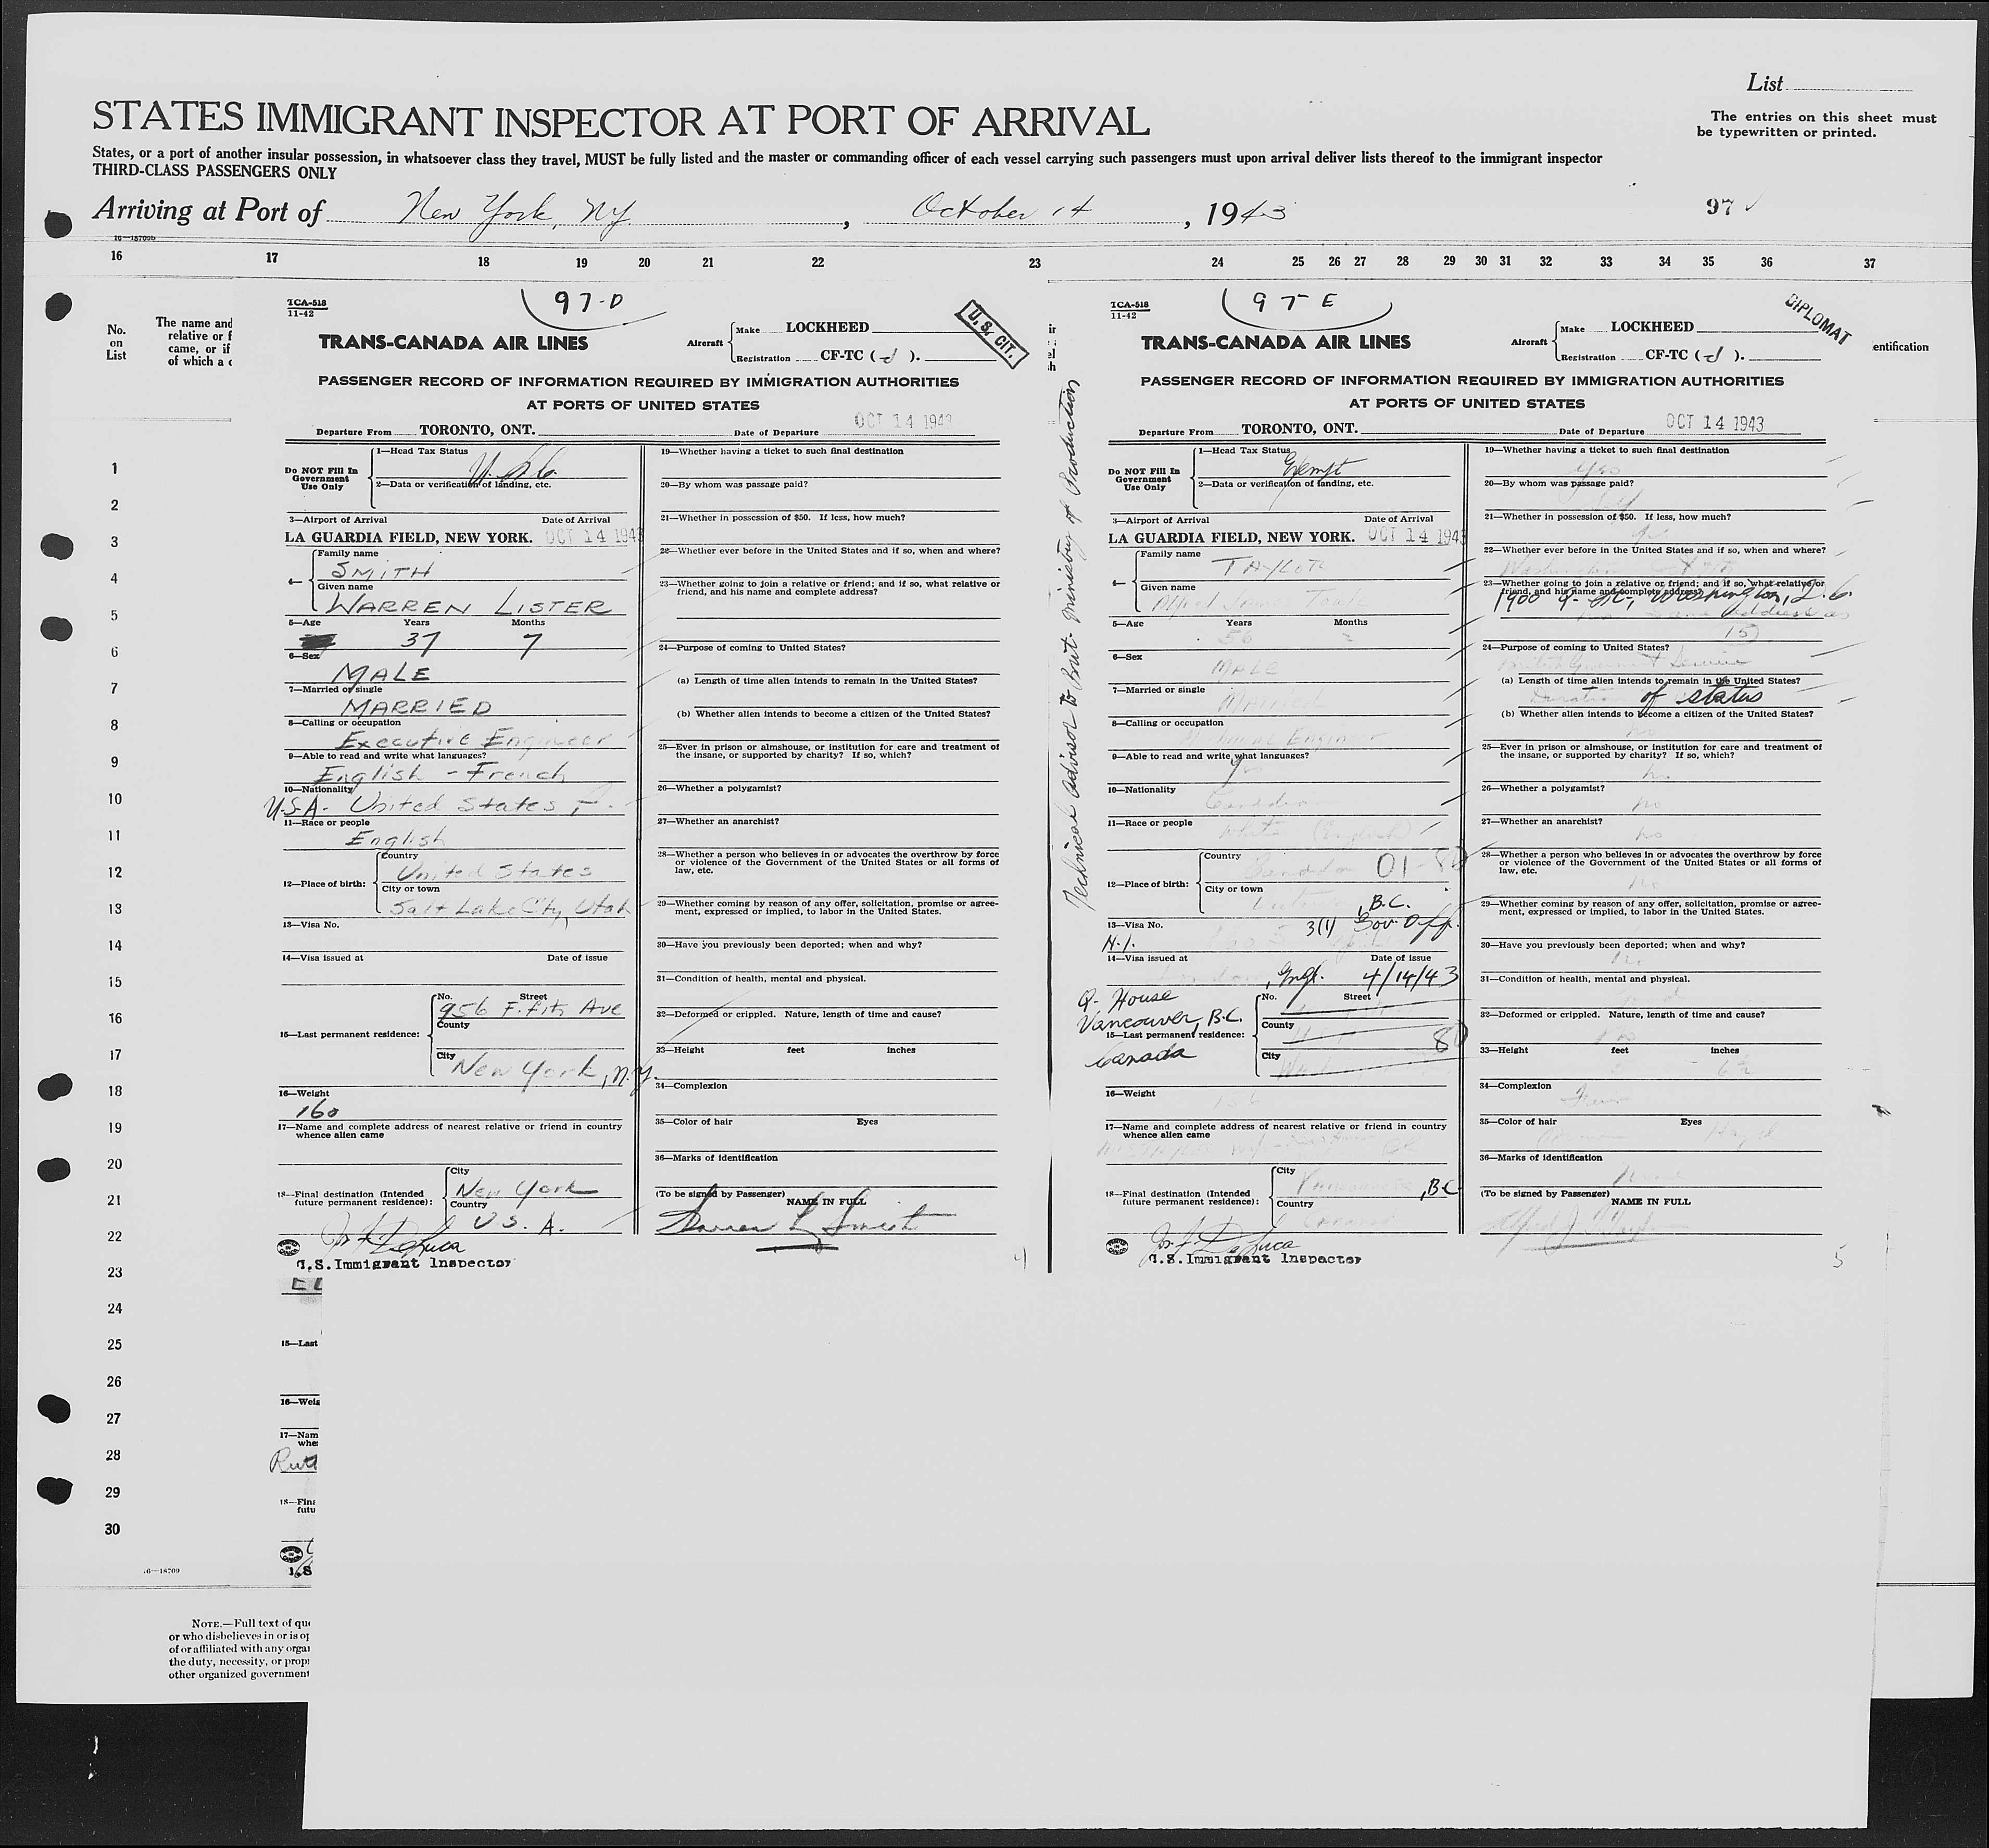 List
The entries on this sheet must
be typewritten or printed.
STATES IMMIGRANT INSPECTOR AT PORT OF ARRIVAL
States, or a port of another insular possession, in whatsoever class they travel, MUST be fully listed and the master or commanding officer of each vessel carrying such passengers must upon arrival deliver lists thereof to the immigrant inspector
THIRD-CLASS PASSENGERS ONLY
Arriving at Port of New York, NY. , October 14 , 1943
97
16—18709b
16 17 18 19 20 21 22 23 24 25 26 27 28 29 30 31 32 33 34 35 36 37
No.
on
List
The name and
relative or f
came, or if
of which a c
entification
1
2
3
4
5
6
7
8
9
10
11
12
13
14
15
16
17
18
19
20
21
22
23
24
25
26
27
28
29
30
TCA-518
11-42
97-D
U.S. CIT.
TRANS-CANADA AIR LINES
Aircraft
Make LOCKHEED
Registration CF-TC ( d ).
PASSENGER RECORD OF INFORMATION REQUIRED BY IMMIGRATION AUTHORITIES
AT PORTS OF UNITED STATES
Departure From TORONTO, ONT. Date of Departure OCT 14 1943
Do NOT Fill In
Government
Use Only
1—Head Tax Status
2—Data or verification of landing, etc.
3—Airport of Arrival Date of Arrival
LA GUARDIA FIELD, NEW YORK. OCT 14 1943
4—
Family name
SMITH
Given name
WARREN LISTER
5—Age Years Months
37 7
6—Sex
MALE
7—Married or single
MARRIED
8—Calling or occupation
Executive Engineer
9—Able to read and write what languages?
English - French
10—Nationality
U.S.A. United States
11—Race or people
English
12—Place of birth:
Country
United States
City or town
Salt Lake City, Utah
13—Visa No.
14—Visa issued at Date of issue
15—Last permanent residence:
No. Street
956 Fifth Ave
County
City
New York, N.Y.
16—Weight
160
17—Name and complete address of nearest relative or friend in country
whence alien came
18—Final destination (Intended
future permanent residence):
City
New York
Country
U.S.A.
DeLuca
U.S. Immigrant Inspector
19—Whether having a ticket to such final destination
20—By whom was passage paid?
21—Whether in possession of $50. If less, how much?
22—Whether ever before in the United States and if so, when and where?
23—Whether going to join a relative or friend; and if so, what relative or
friend, and his name and complete address?
24—Purpose of coming to United States?
(a) Length of time alien intends to remain in the United States?
(b) Whether alien intends to become a citizen of the United States?
25—Ever in prison or almshouse, or institution for care and treatment of
the insane, or supported by charity? If so, which?
26—Whether a polygamist?
27—Whether an anarchist?
28—Whether a person who believes in or advocates the overthrow by force
or violence of the Government of the United States or all forms of
law, etc.
29—Whether coming by reason of any offer, solicitation, promise or agree-
ment, expressed or implied, to labor in the United States.
30—Have you previously been deported; when and why?
31—Condition of health, mental and physical.
32—Deformed or crippled. Nature, length of time and cause?
33—Height feet inches
34—Complexion
35—Color of hair Eyes
36—Marks of identification
(To be signed by Passenger) NAME IN FULL
Warren L Smith
4
Technical advisor to Brit. Ministry of Production
TCA-518
11-42
97-E
DIPLOMAT
TRANS-CANADA AIR LINES
Aircraft
Make LOCKHEED
Registration CF-TC ( d ).
PASSENGER RECORD OF INFORMATION REQUIRED BY IMMIGRATION AUTHORITIES
AT PORTS OF UNITED STATES
Departure From TORONTO, ONT. Date of Departure OCT 14 1943
Do NOT Fill In
Government
Use Only
1—Head Tax Status
Exempt
2—Data or verification of landing, etc.
3—Airport of Arrival Date of Arrival
LA GUARDIA FIELD, NEW YORK. OCT 14 1943
4—
Family name
TAYLOR
Given name
Alfred James
5—Age Years Months
56
6—Sex
MALE
7—Married or single
Married
8—Calling or occupation
Engineer
9—Able to read and write what languages?
Yes
10—Nationality
Canadian
11—Race or people
White (English)
12—Place of birth:
Country
Canada 01-80
City or town
, B.C.
13—Visa No. 3(1) Gov Off.
14—Visa issued at Date of issue
, Engl. 4/14/43
Q. House
Vancouver, B.C.
15—Last permanent residence:
Canada
No. Street
County
80
City
16—Weight
17—Name and complete address of nearest relative or friend in country
whence alien came
18—Final destination (Intended
future permanent residence):
City
Vancouver, B.C.
Country
Canada
DeLuca
U.S. Immigrant Inspector
19—Whether having a ticket to such final destination
Yes
20—By whom was passage paid?
21—Whether in possession of $50. If less, how much?
22—Whether ever before in the United States and if so, when and where?
Washington
23—Whether going to join a relative or friend; and if so, what relative or
friend, and his name and complete address?
1900 Q. St., Washington, D.C.
24—Purpose of coming to United States?
British Government Service
(a) Length of time alien intends to remain in the United States?
Duration of status
(b) Whether alien intends to become a citizen of the United States?
no
25—Ever in prison or almshouse, or institution for care and treatment of
the insane, or supported by charity? If so, which?
no
26—Whether a polygamist?
no
27—Whether an anarchist?
no
28—Whether a person who believes in or advocates the overthrow by force
or violence of the Government of the United States or all forms of
law, etc.
no
29—Whether coming by reason of any offer, solicitation, promise or agree-
ment, expressed or implied, to labor in the United States.
30—Have you previously been deported; when and why?
no
31—Condition of health, mental and physical.
32—Deformed or crippled. Nature, length of time and cause?
33—Height feet inches
34—Complexion
35—Color of hair Eyes
Hazel
36—Marks of identification
(To be signed by Passenger) NAME IN FULL
5
15—Last
16—Weig
17—Nam
whe
18—Fina
futu
16—18709
NOTE.—Full text of que
or who disbelieves in or is op
of or affiliated with any organ
the duty, necessity, or propr
other organized government